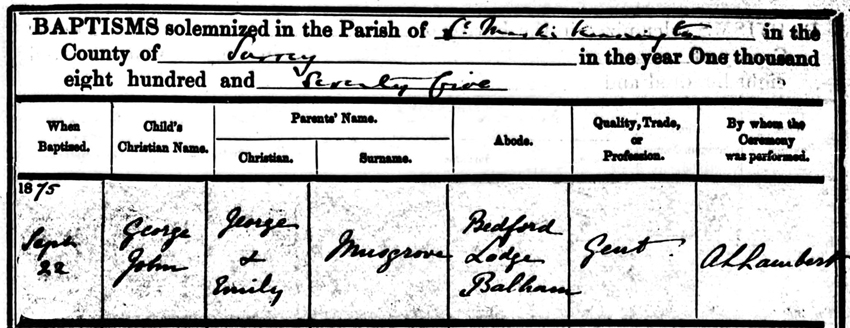 BAPTISMS solemnized in the Parish of St Mark's Kennington in the
County of Surrey in the year One thousand
eight hundred and Seventy five
When Baptised.
Child's Christian Name.
Parents' Name.
Christian.
Surname.
Abode.
Quality, Trade, or Profession.
By whom the Ceremony was performed.
1875
Sept
22
George
John
George
&
Emily
Musgrove
Bedford
Lodge
Balham
Gent.
A L Lambert